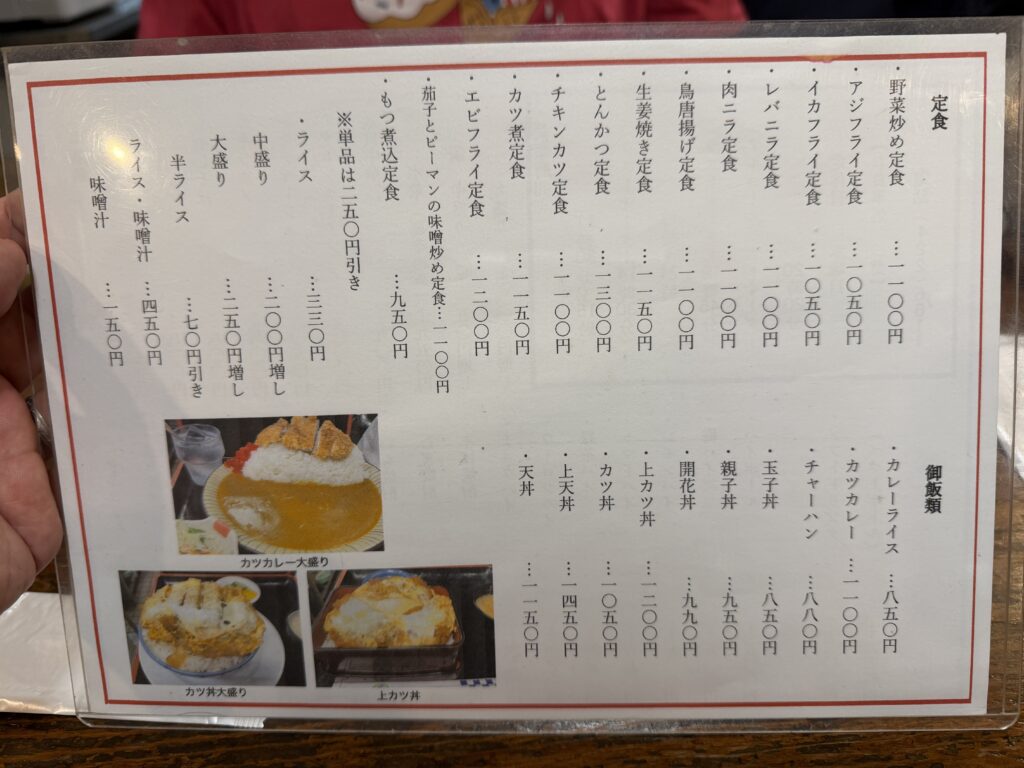 定食
・野菜炒め定食 …一一〇〇円
・アジフライ定食 …一〇五〇円
・イカフライ定食 …一〇五〇円
・レバニラ定食 …一一〇〇円
・肉ニラ定食 …一一〇〇円
・鳥唐揚げ定食 …一一〇〇円
・生姜焼き定食 …一一五〇円
・とんかつ定食 …一三〇〇円
・チキンカツ定食 …一一〇〇円
・カツ煮定食 …一一五〇円
・エビフライ定食 …一二〇〇円
・茄子とピーマンの味噌炒め定食…一一〇〇円
・もつ煮込定食 …九五〇円
※単品は二五〇円引き
・ライス …三三〇円
中盛り …二〇〇円増し
大盛り …二五〇円増し
半ライス …七〇円引き
ライス・味噌汁 …四五〇円
味噌汁 …一五〇円
御飯類
・カレーライス …八五〇円
・カツカレー …一一〇〇円
・チャーハン …八八〇円
・玉子丼 …八五〇円
・親子丼 …九五〇円
・開花丼 …九九〇円
・上カツ丼 …一二〇〇円
・カツ丼 …一〇五〇円
・上天丼 …一四五〇円
・天丼 …一一五〇円
カツカレー大盛り
カツ丼大盛り
上カツ丼